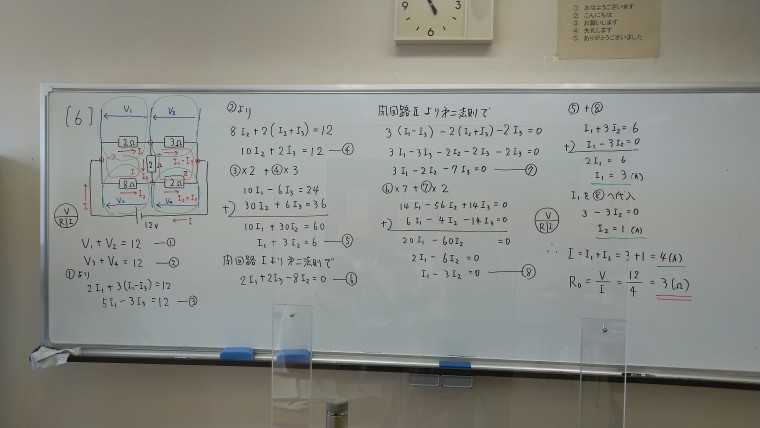 ① おはようございます
② こんにちは
③ お願いします
④ 失礼します
⑤ ありがとうございました
9
3
5
6
[6]
V₁ V₂
2Ω 3Ω
2Ω
8Ω 2Ω
V₃ V₄
12V
V
R I
V₁ + V₂ = 12 —①
V₃ + V₄ = 12 —②
①より
2I₁ + 3(I₁-I₃) = 12
5I₁ - 3I₃ = 12 —③
②より
8I₂ + 2(I₂+I₃) = 12
10I₂ + 2I₃ = 12 —④
③×2 + ④×3
10I₁ - 6I₃ = 24
+) 30I₂ + 6I₃ = 36
10I₁ + 30I₂ = 60
I₁ + 3I₂ = 6 —⑤
閉回路Ⅰより第二法則で
2I₁ + 2I₃ - 8I₂ = 0 —⑥
閉回路Ⅱより第二法則で
3(I₁-I₃) - 2(I₂+I₃) - 2I₃ = 0
3I₁ - 3I₃ - 2I₂ - 2I₃ - 2I₃ = 0
3I₁ - 2I₂ - 7I₃ = 0 —⑦
⑥×7 + ⑦×2
14I₁ - 56I₂ + 14I₃ = 0
+) 6I₁ - 4I₂ - 14I₃ = 0
20I₁ - 60I₂ = 0
2I₁ - 6I₂ = 0
I₁ - 3I₂ = 0 —⑧
⑤+⑧
I₁ + 3I₂ = 6
+) I₁ - 3I₂ = 0
2I₁ = 6
I₁ = 3 (A)
I₁を⑧へ代入
3 - 3I₂ = 0
I₂ = 1 (A)
V
R I
∴ I = I₁ + I₂ = 3 + 1 = 4 (A)
R₀ = V/I = 12/4 = 3 (Ω)